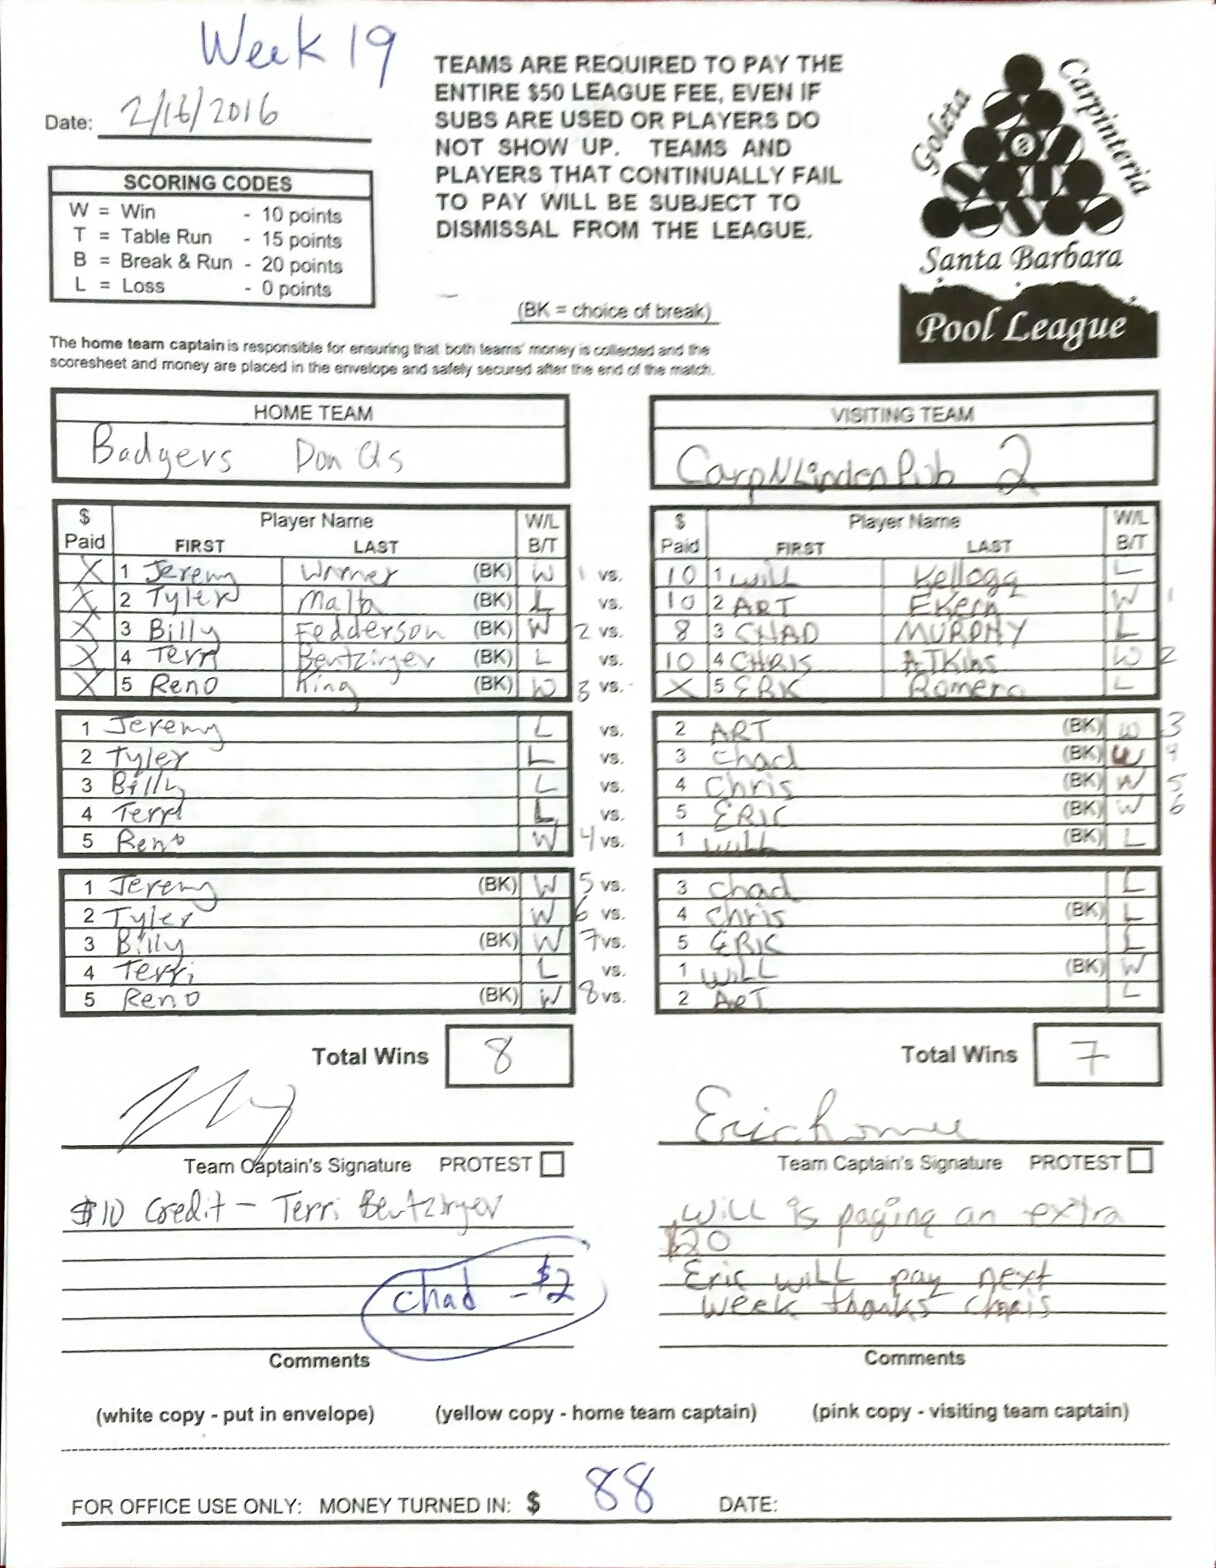 Week 19
TEAMS ARE REQUIRED TO PAY THE
ENTIRE $50 LEAGUE FEE, EVEN IF
SUBS ARE USED OR PLAYERS DO
NOT SHOW UP. TEAMS AND
PLAYERS THAT CONTINUALLY FAIL
TO PAY WILL BE SUBJECT TO
DISMISSAL FROM THE LEAGUE.
Date: 2/16/2016
Goleta
Carpinteria
8
Santa Barbara
Pool League
SCORING CODES
W = Win - 10 points
T = Table Run - 15 points
B = Break & Run - 20 points
L = Loss - 0 points
(BK = choice of break)
The home team captain is responsible for ensuring that both teams' money is collected and the
scoresheet and money are placed in the envelope and safely secured after the end of the match.
HOME TEAM VISITING TEAM
Badgers Don Qs CarpNLindenPub 2
$ Paid Player Name FIRST LAST W/L B/T $ Paid Player Name FIRST LAST W/L B/T
X 1 Jeremy (BK) W 1 vs. 10 1 Will Kellogg L
X 2 Tyler Malta (BK) L vs. 10 2 ART W 1
X 3 Billy Fedderson (BK) W 2 vs. 8 3 CHAD MURPHY L
X 4 Terri Bentzinger (BK) L vs. 10 4 CHRIS ATKINS W 2
X 5 Reno King (BK) W 3 vs. X 5 ERK Romero L
1 Jeremy L vs. 2 ART (BK) W 3
2 Tyler L vs. 3 chad (BK) W 4
3 Billy L vs. 4 Chris (BK) W 5
4 Terri L vs. 5 ERIC (BK) W 6
5 Reno W 4 vs. 1 will (BK) L
1 Jeremy (BK) W 5 vs. 3 chad L
2 Tyler W 6 vs. 4 Chris (BK) L
3 Billy (BK) W 7 vs. 5 ERIC L
4 Terri L vs. 1 WILL (BK) W
5 Reno (BK) W 8 vs. 2 ART L
Total Wins 8 Total Wins 7
Team Captain's Signature PROTEST Team Captain's Signature PROTEST
$10 Credit - Terri Bentzinger
chad - $2
Comments
Will is paying an extra
$20
Eric will pay next
week thanks Chris
Comments
(white copy - put in envelope) (yellow copy - home team captain) (pink copy - visiting team captain)
FOR OFFICE USE ONLY: MONEY TURNED IN: $ 88 DATE: